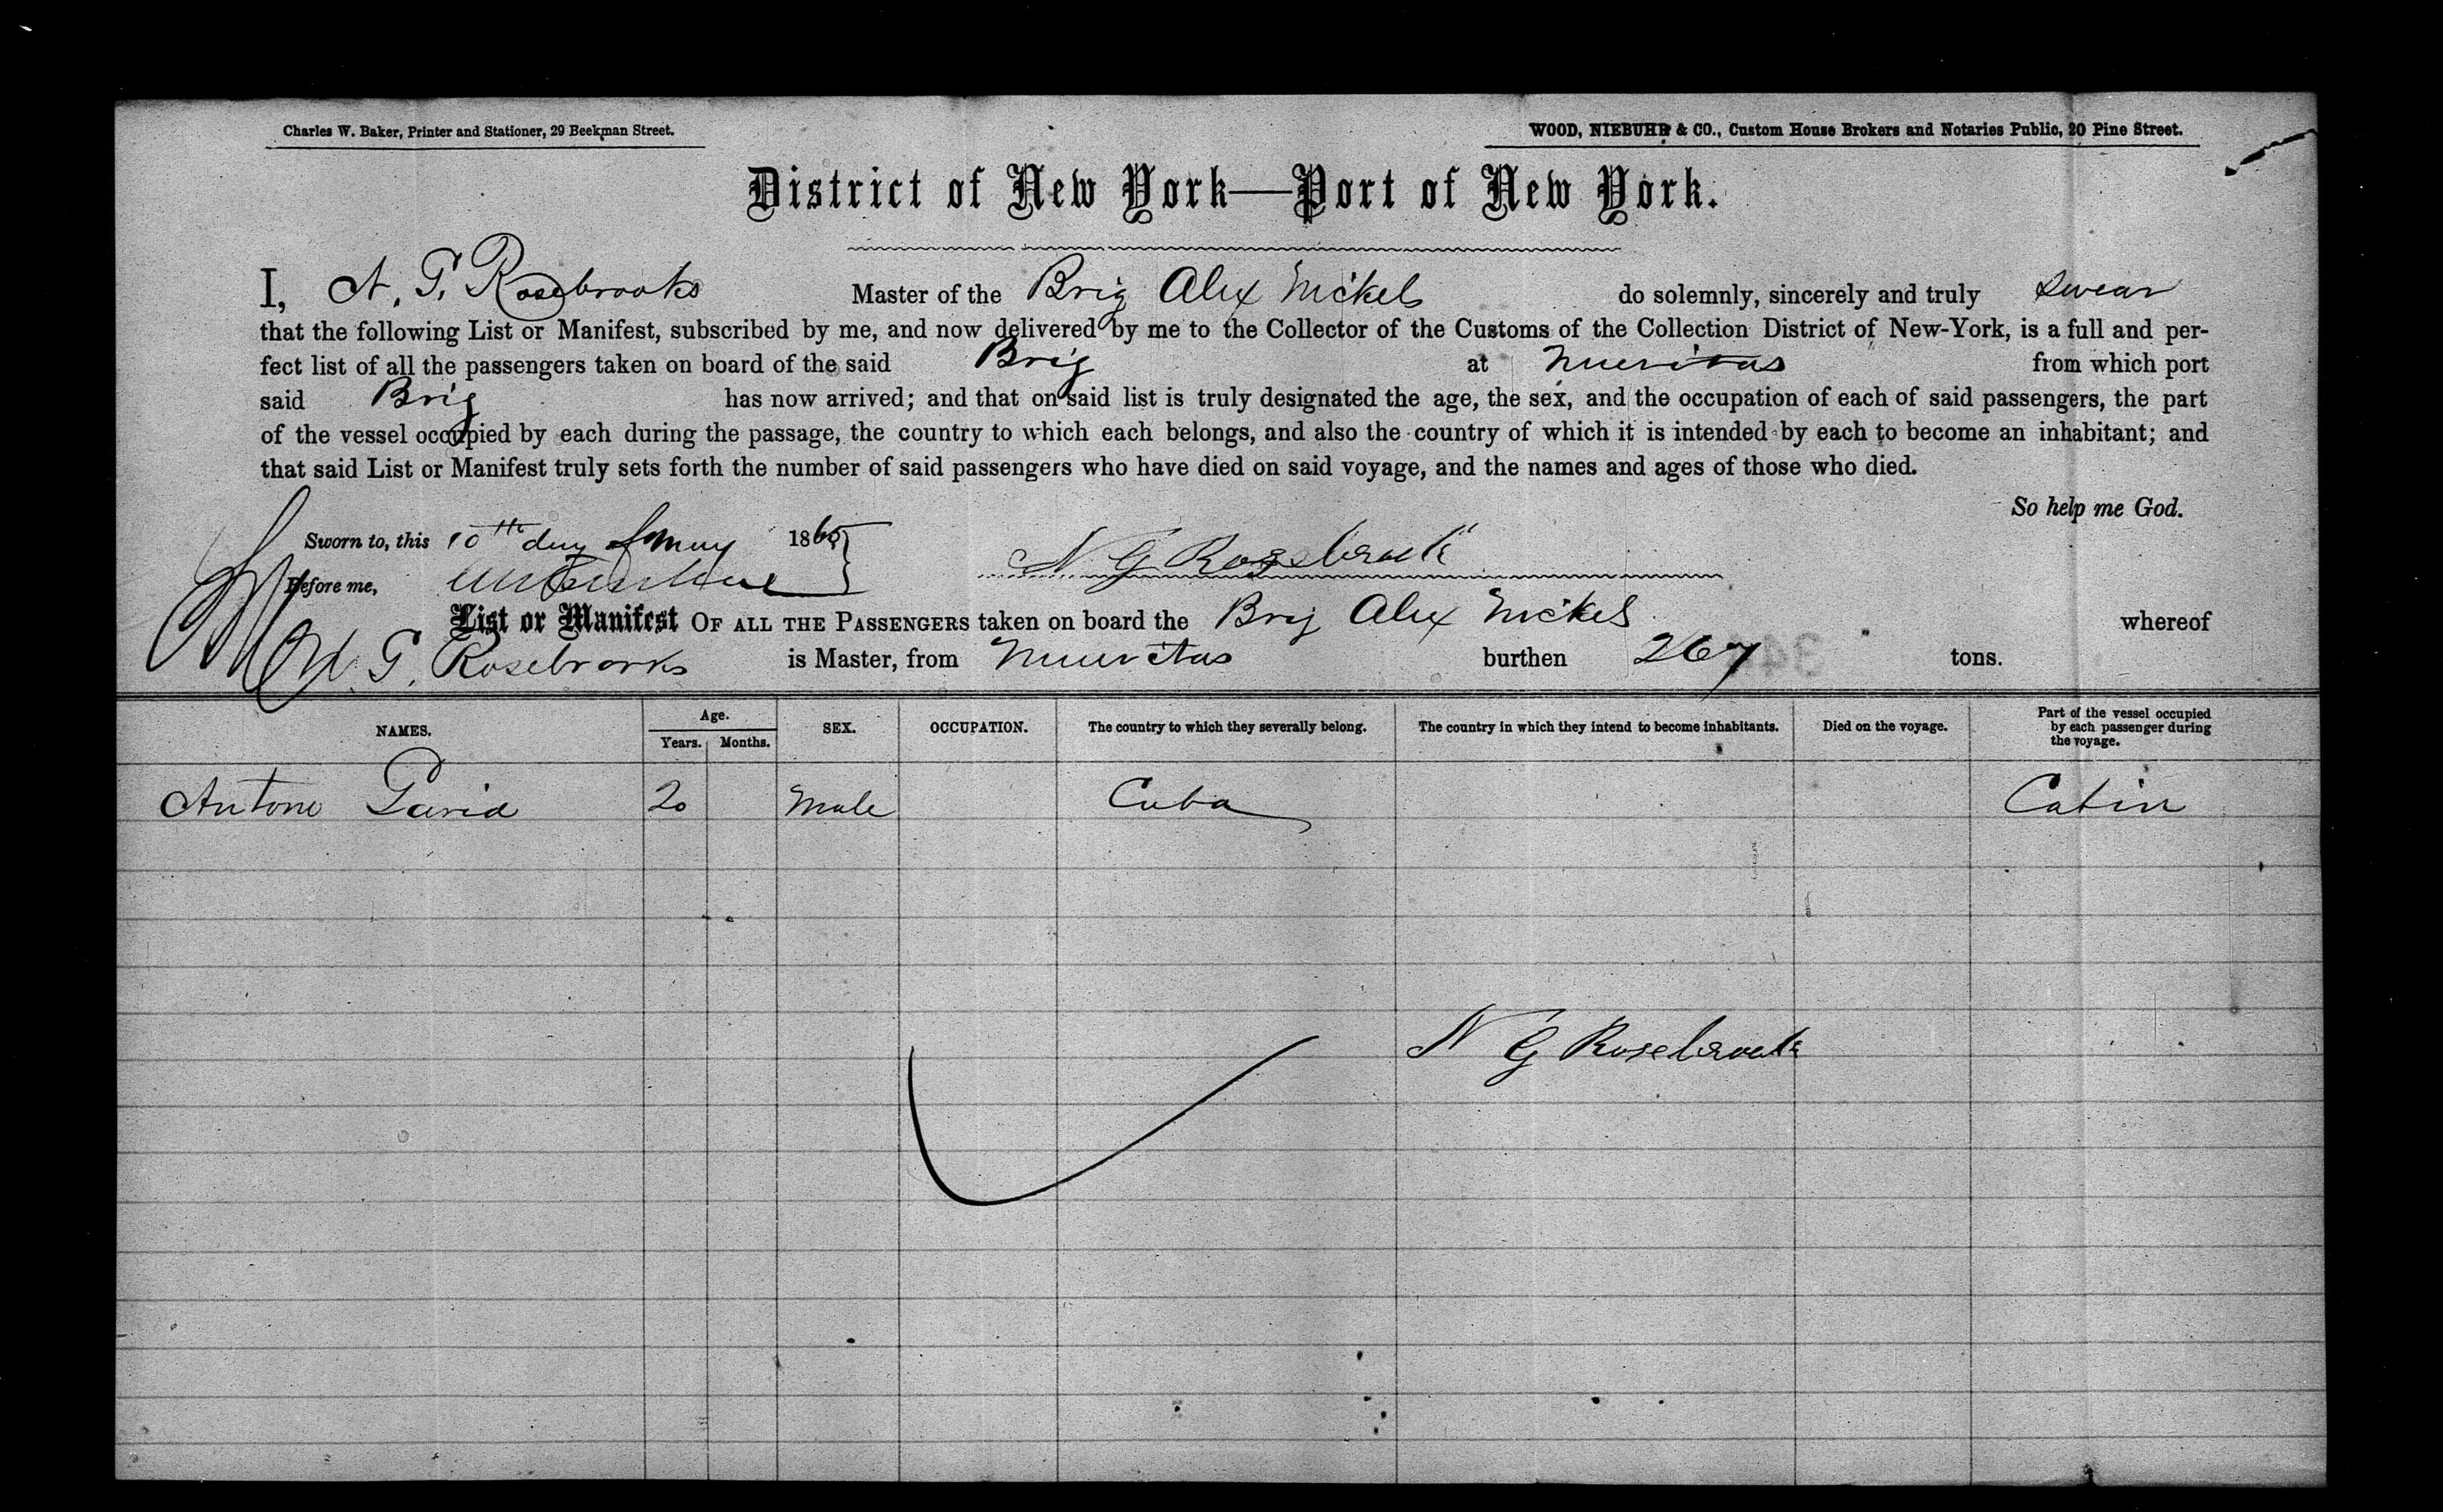 Charles W. Baker, Printer and Stationer, 29 Beekman Street.
WOOD, NIEBUHR & CO., Custom House Brokers and Notaries Public, 20 Pine Street.
District of New York—Port of New York.
I, N. G. Rosebrooks Master of the Brig Alex Nickels do solemnly, sincerely and truly swear
that the following List or Manifest, subscribed by me, and now delivered by me to the Collector of the Customs of the Collection District of New-York, is a full and per-
fect list of all the passengers taken on board of the said Brig at Nuevitas from which port
said Brig has now arrived; and that on said list is truly designated the age, the sex, and the occupation of each of said passengers, the part
of the vessel occupied by each during the passage, the country to which each belongs, and also the country of which it is intended by each to become an inhabitant; and
that said List or Manifest truly sets forth the number of said passengers who have died on said voyage, and the names and ages of those who died.
So help me God.
Sworn to, this 10th day of May 1865
N G Rosebrook
Before me,
List or Manifest OF ALL THE PASSENGERS taken on board the Brig Alex Nickels whereof
N. G. Rosebrooks is Master, from Nuevitas burthen 267 tons.
NAMES. Age. Years. Months. SEX. OCCUPATION. The country to which they severally belong. The country in which they intend to become inhabitants. Died on the voyage. Part of the vessel occupied by each passenger during the voyage.
Antone 20 Male Cuba Cabin
N G Rosebrook